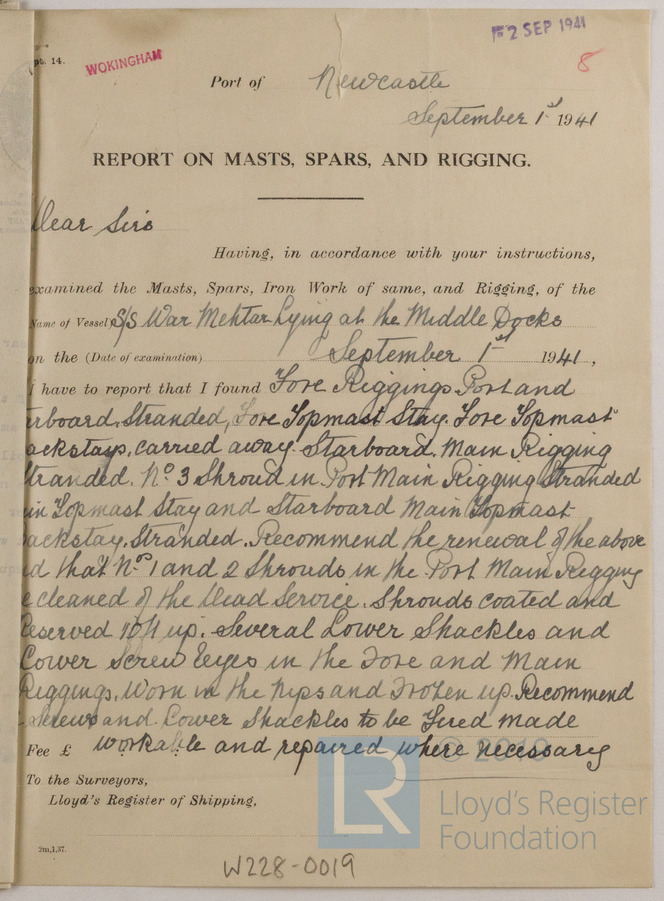 pt. 14.
WOKINGHAM
2 SEP 1941
8
Port of Newcastle
September 1st 1941
REPORT ON MASTS, SPARS, AND RIGGING.
Dear Sirs
Having, in accordance with your instructions,
examined the Masts, Spars, Iron Work of same, and Rigging, of the
(Name of Vessel) S/S War Mehtar Lying at the Middle Docks
on the (Date of examination) September 1st 1941,
I have to report that I found Fore Riggings Port and
arboard. Stranded, Fore Topmast Stay. Fore Topmast
ackstays, carried away. Starboard. Main Rigging
Stranded. No. 3 Shroud in Port Main Rigging Stranded
in Topmast Stay and Starboard Main Topmast
ackstay. Stranded. Recommend the renewal of the above
d that Nos 1 and 2 Shrouds in the Port Main Rigging
e cleaned of the Dead Service. Shrouds coated and
Reserved 10ft up. Several Lower Shackles and
Lower Screw Eeyes in the Fore and Main
Riggings, Worn in the Nips and Frozen up. Recommend
Screws and Lower Shackles to be Freed made
workable and repaired where necessary
Fee £
© 2019
To the Surveyors,
Lloyd's Register of Shipping,
Lloyd's Register
Foundation
LR
2m,1,37.
W228-0019